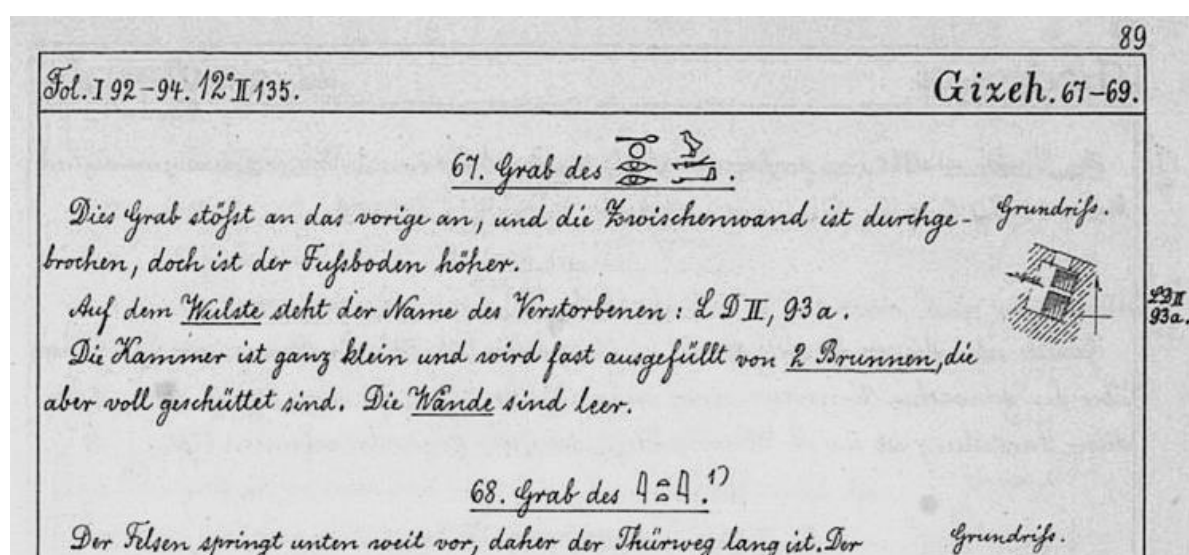 89
Fol. I 92–94. 12° II 135.
Gizeh. 67–69.
67. Grab des
Dies Grab stöſst an das vorige an, und die Zwischenwand ist durchge-
Grundriſs.
brochen, doch ist der Fuſsboden höher.
Auf dem Wulste steht der Name des Verstorbenen: L D II, 93a.
LD II
93a.
Die Kammer ist ganz klein und wird fast ausgefüllt von 2 Brunnen, die
aber voll geschüttet sind. Die Wände sind leer.
68. Grab des 𓇋𓏏𓏏𓇋.¹⁾
Der Felsen springt unten weit vor, daher der Thürweg lang ist. Der
Grundriſs.